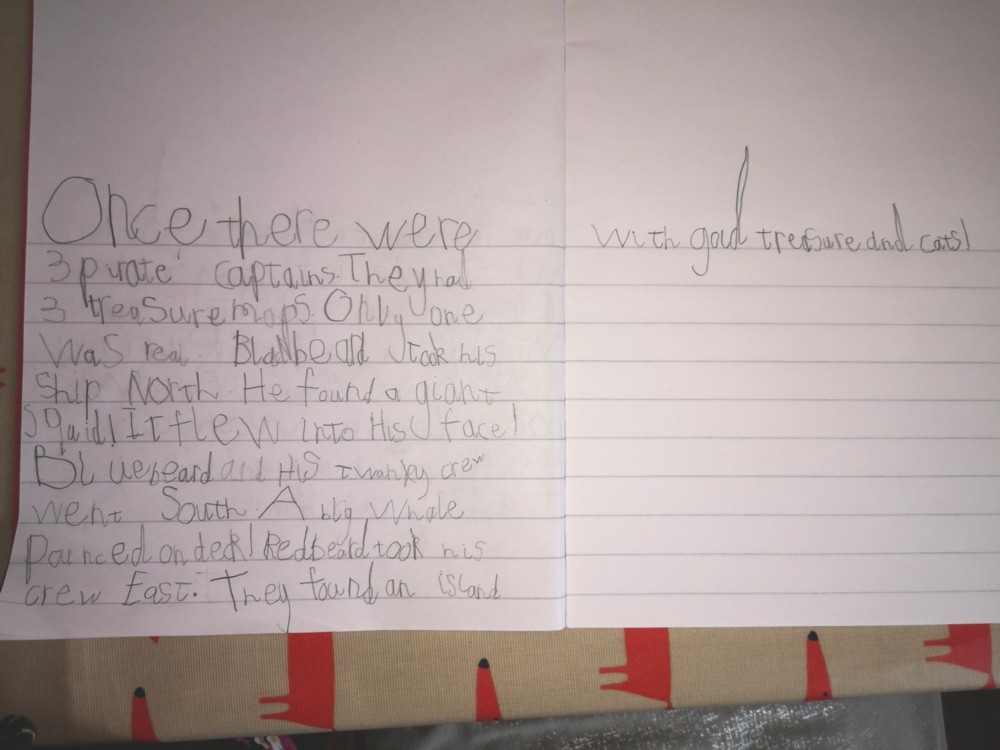 Once there were
3 pirate captains. They had
3 treasure maps. Only one
was real. Blackbeard took his
Ship North. He found a giant
Squid! It flew into His face!
Bluebeard and His swanky crew
went South. A big whale
Pounced on deck! Redbeard took his
crew East. They found an island
with gould treasure and cats!